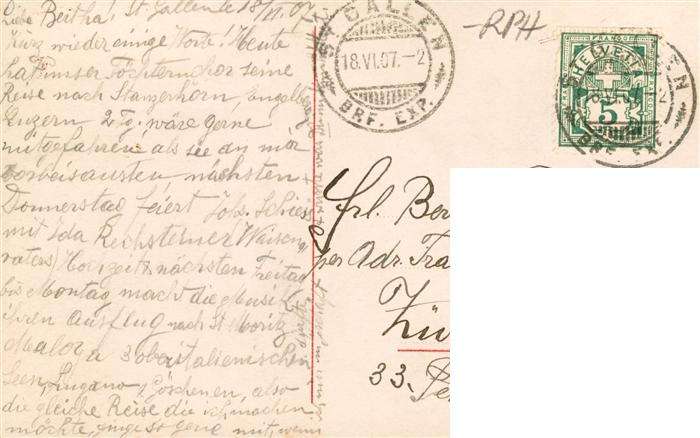 Liebe Bertha! St. Gallen 18/VI.07
Kurz wieder einige Worte! Heute
hat unser Töchternchor seine
Reise nach Stanzerhorn, Engelberg
Luzern 2 Tg. wäre gerne
mitgefahren als sie an mir
vorbeisausten, nächsten
Donnerstag feiert Johs. Schiess
mit Ida Rechsteiner (Waisen
vaters) Hochzeit, nächsten Freitag
bis Montag macht die Musik
ihren Ausflug nach St. Moritz
Maloja 3 oberitalienischen
Seen, Lugano, Göschenen, also
die gleiche Reise die ich machen
möchte, so gerne mit, wenn
ST. GALLEN
18.VI.07.-2
BRF. EXP.
-RPH
FRANCO
HELVETIA
5
N
-2
BRF. EX
Frl. Ber
per Adr. Tra
Zü
33.